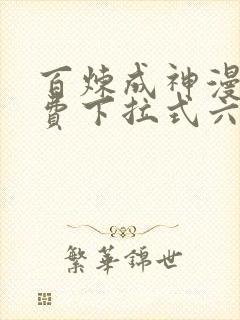 百炼成神漫
费下拉式六
繁華錦世